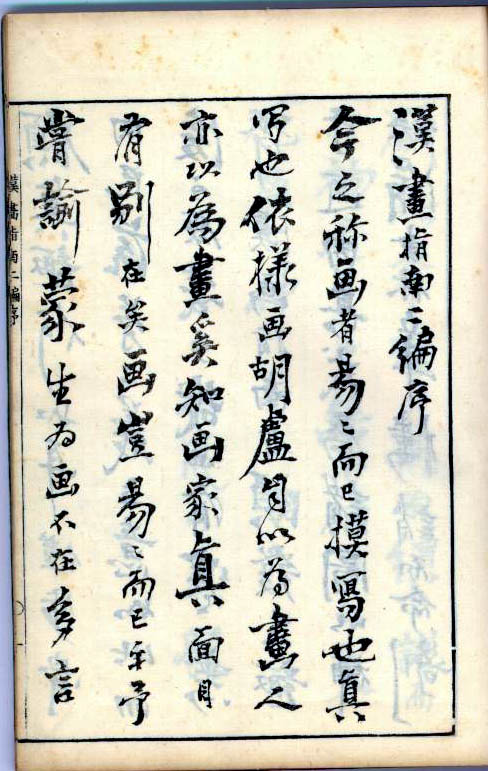 漢畫指南二編序
今之称画者易〻而已摸寫也真
写也依様画胡盧自以為畫人
亦以為畫奚知画家真面目
有別在矣画豈易〻而已乎予
嘗諭蒙生為画不在多言
漢畫指南二編序